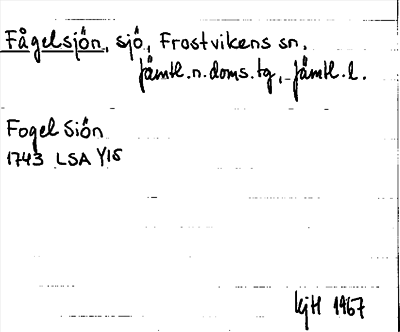 Fågelsjön, sjö, Frostvikens sn.
Jämtl.n.doms.tg, Jämtl.l.
Fogel Siön
1743 LSA Y15
KjH 1967